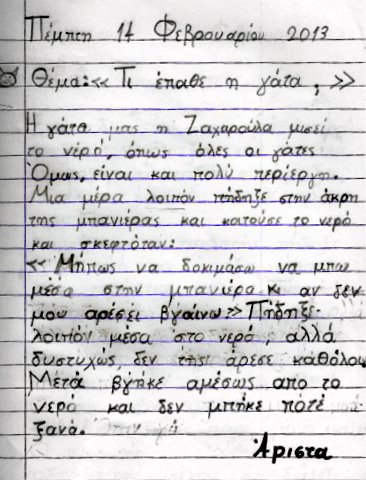 Πέμπτη 14 Φεβρουαρίου 2013
Θέμα:<< Τι έπαθε η γάτα ; >>
Η γάτα μας η Ζαχαρούλα μισεί
το νερό, όπως όλες οι γάτες
Όμως, είναι και πολύ περίεργη.
Μια μέρα λοιπόν πήδηξε στην άκρη
της μπανιέρας και κοιτούσε το νερό
και σκεφτόταν:
<< Μήπως να δοκιμάσω να μπω
μέσα στην μπανιέρα κι αν δεν
μου αρέσει βγαίνω >> Πήδηξε
λοιπόν μέσα στο νερό, αλλά
δυστυχώς, δεν της άρεσε καθόλου
Μετά βγήκε αμέσως απο το
νερό και δεν μπήκε ποτέ
ξανά.
Άριστα